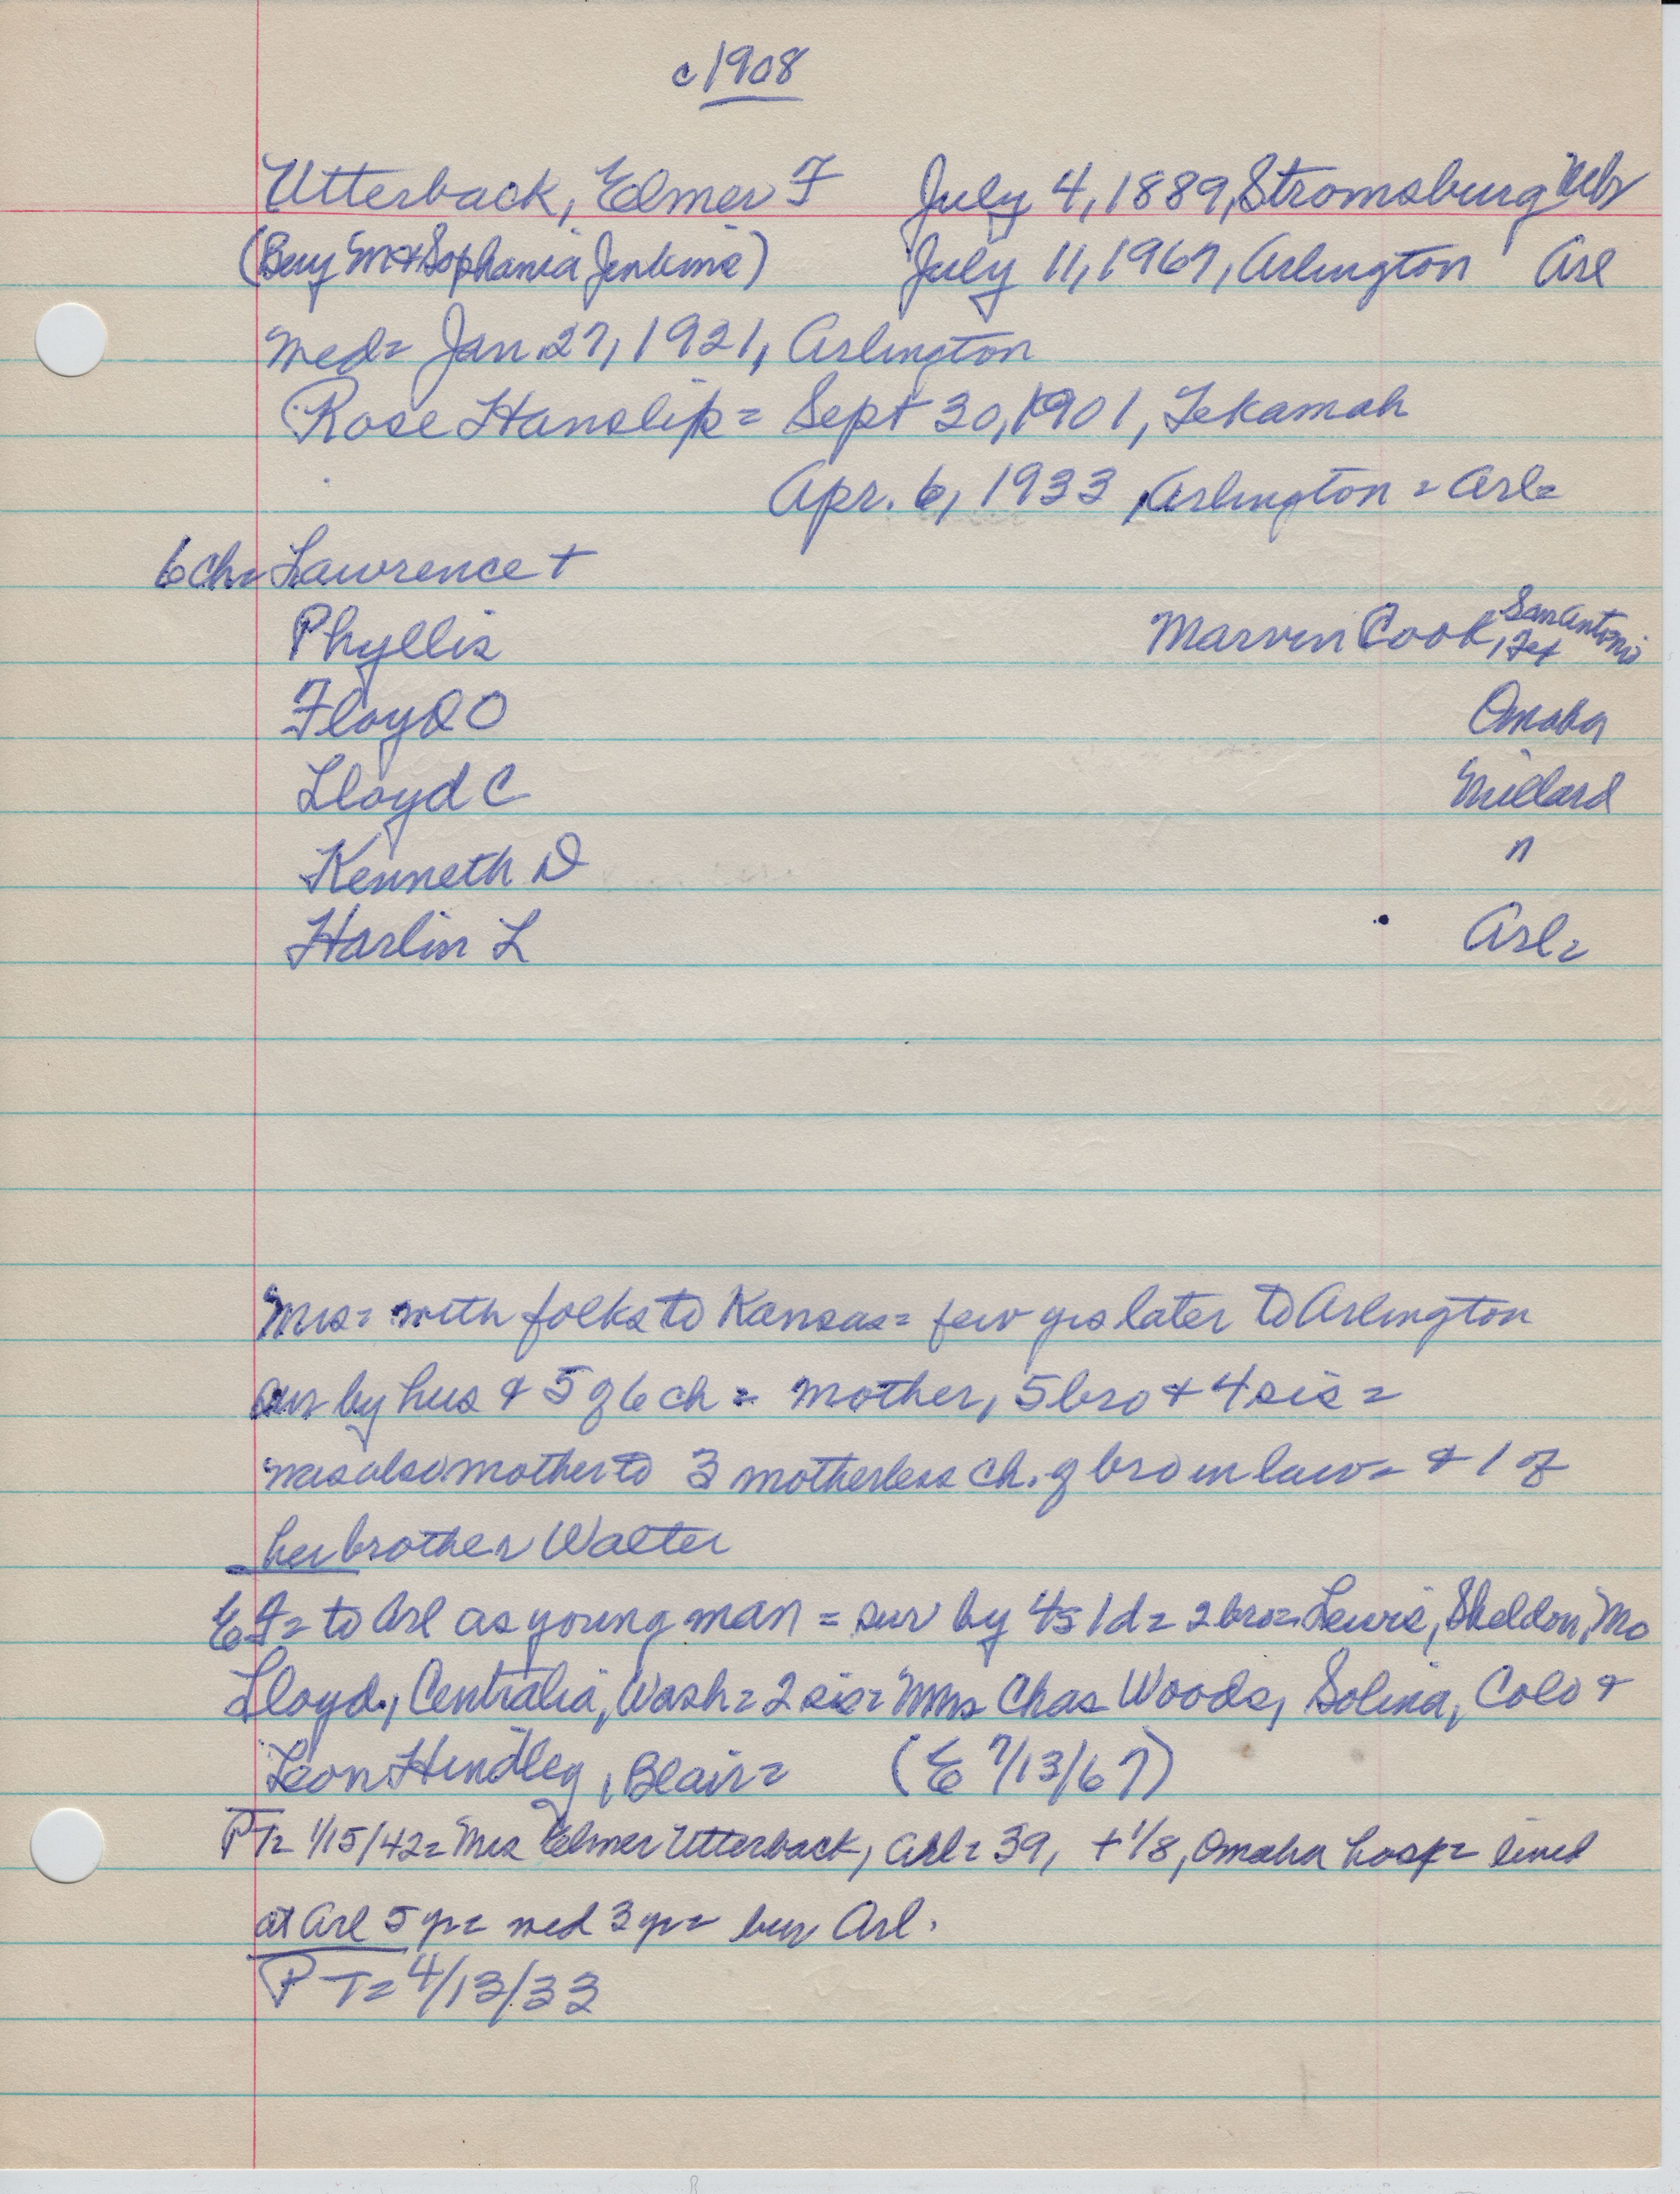 c1908
Utterback, Elmer F July 4, 1889, Stromsburg Nebr
(Benj M & Sophania Jenkins) July 11, 1967, Arlington Arl
med= Jan 27, 1921, Arlington
Rose Hanslip= Sept 30, 1901, Tekamah
Apr. 6, 1933, Arlington = Arl=
6 ch= Lawrence +
Phyllis Marvin Cook, San Antonio, Tex
Floyd O Omaha
Lloyd C Millard
Kenneth D "
Harlin L Arl=
Mrs= with folks to Kansas= few yrs later to Arlington
sur by hus & 5 of 6 ch = mother, 5 bro & 4 sis =
was also mother to 3 motherless ch. of bro in law= & 1 of
her brother Walter
EF= to Arl as young man = sur by 4s 1d= 2 bro= Lewis, Sheldon, Mo
Lloyd, Centralia, Wash= 2 sis= Mms Chas Woods, Solina, Colo &
Leon Hindley, Blair= (E 7/13/67)
PT= 1/15/42= Mrs Elmer Utterback, Arl= 39, + 1/8, Omaha hosp= lived
at Arl 5 yr= med 3 yr= bur Arl.
PT= 4/13/33